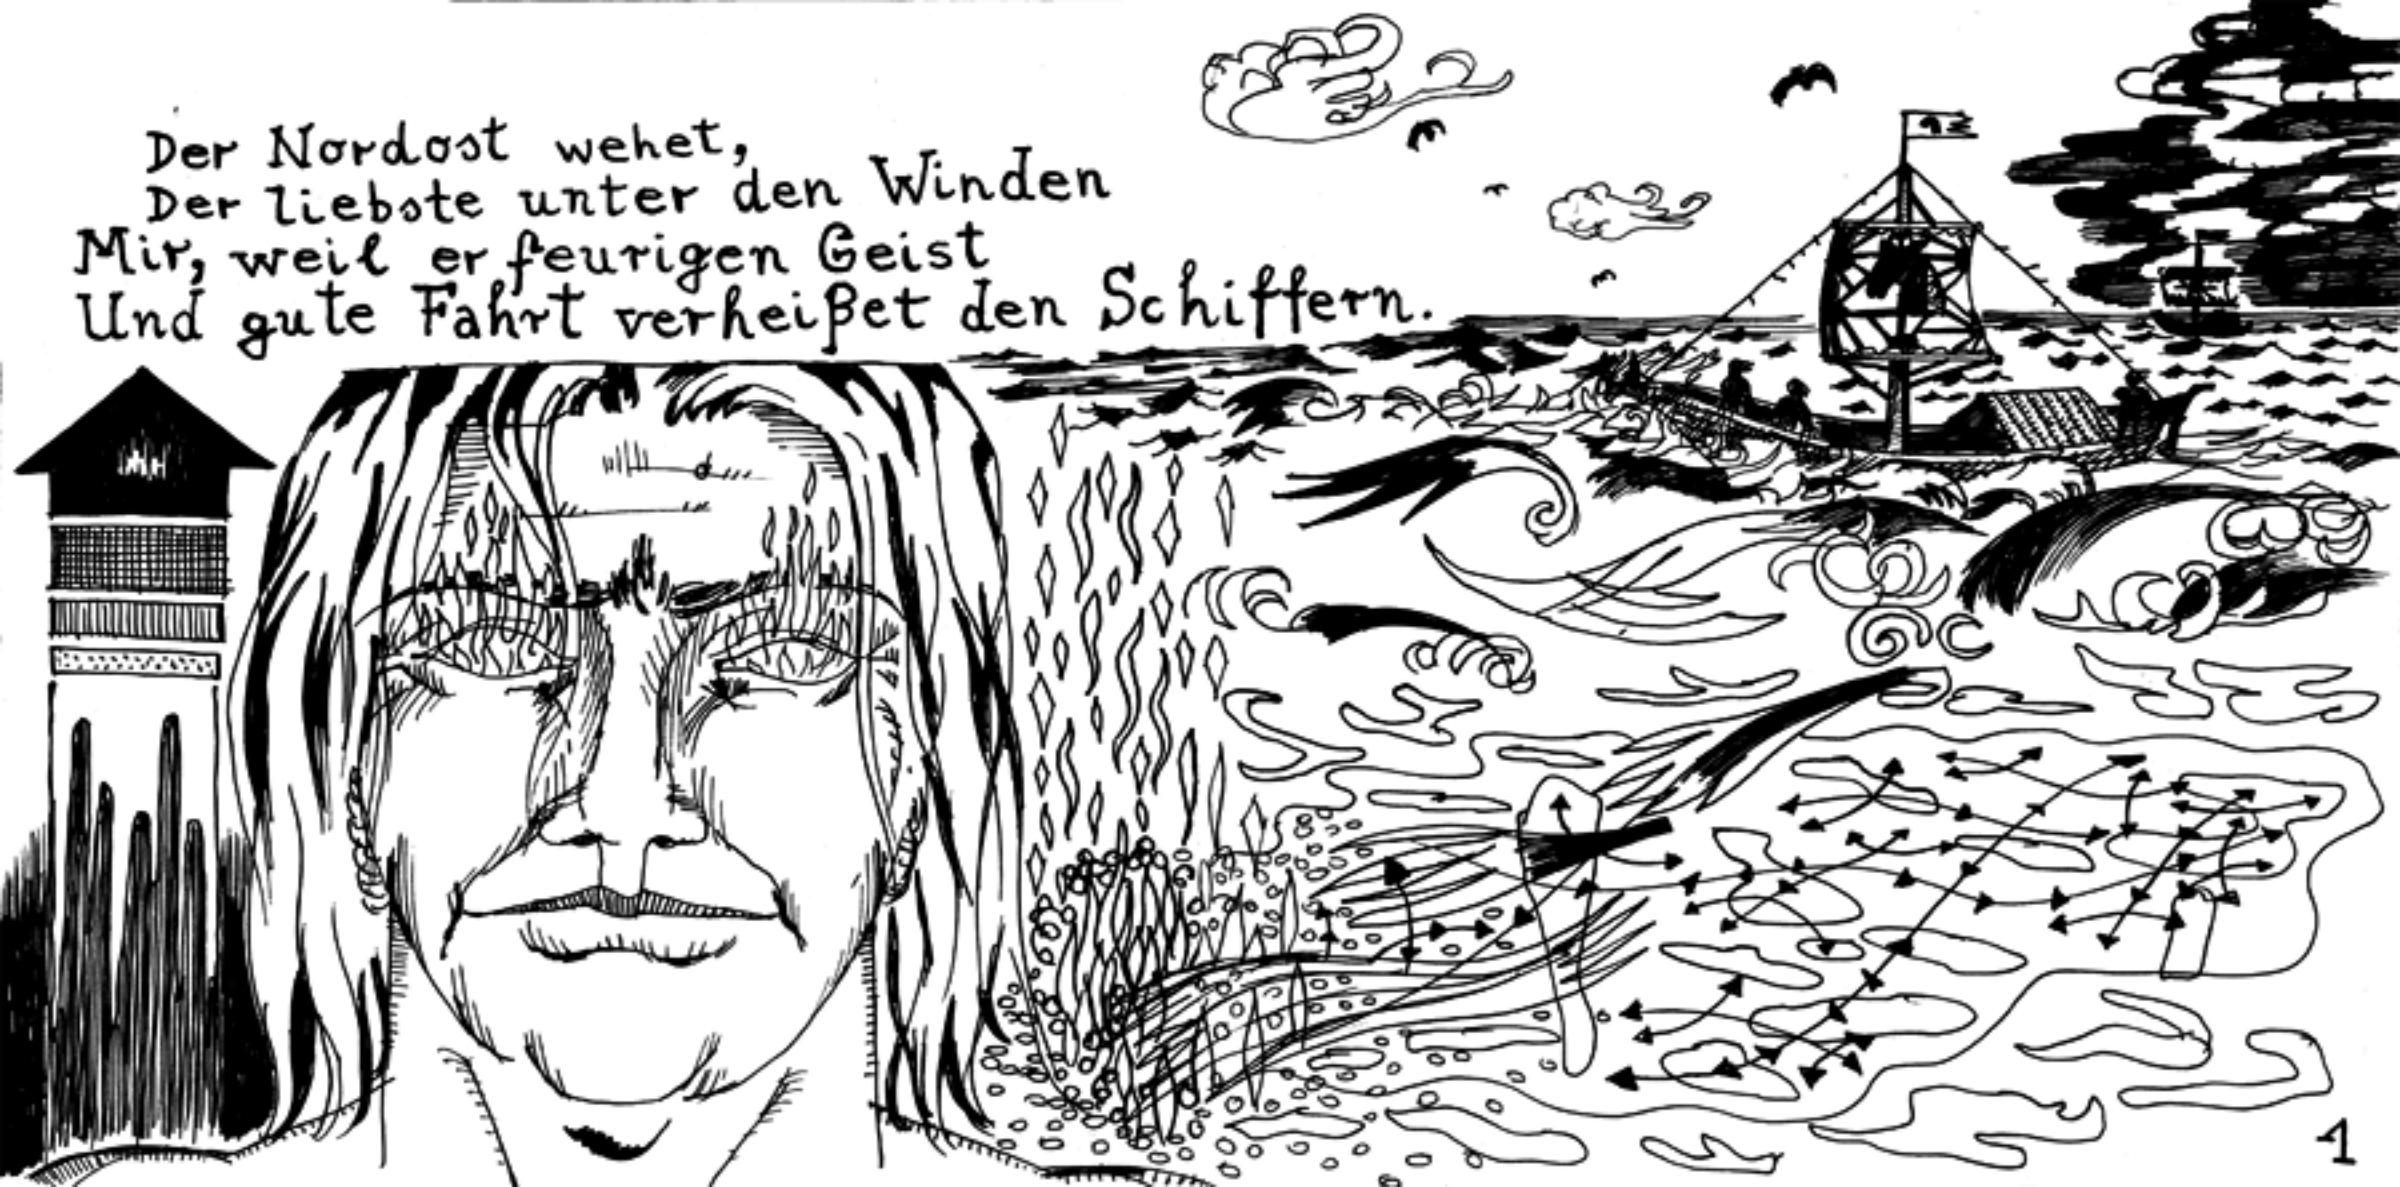 Der Nordost wehet,
Der liebste unter den Winden
Mir, weil er feurigen Geist
Und gute Fahrt verheißet den Schiffern.
1